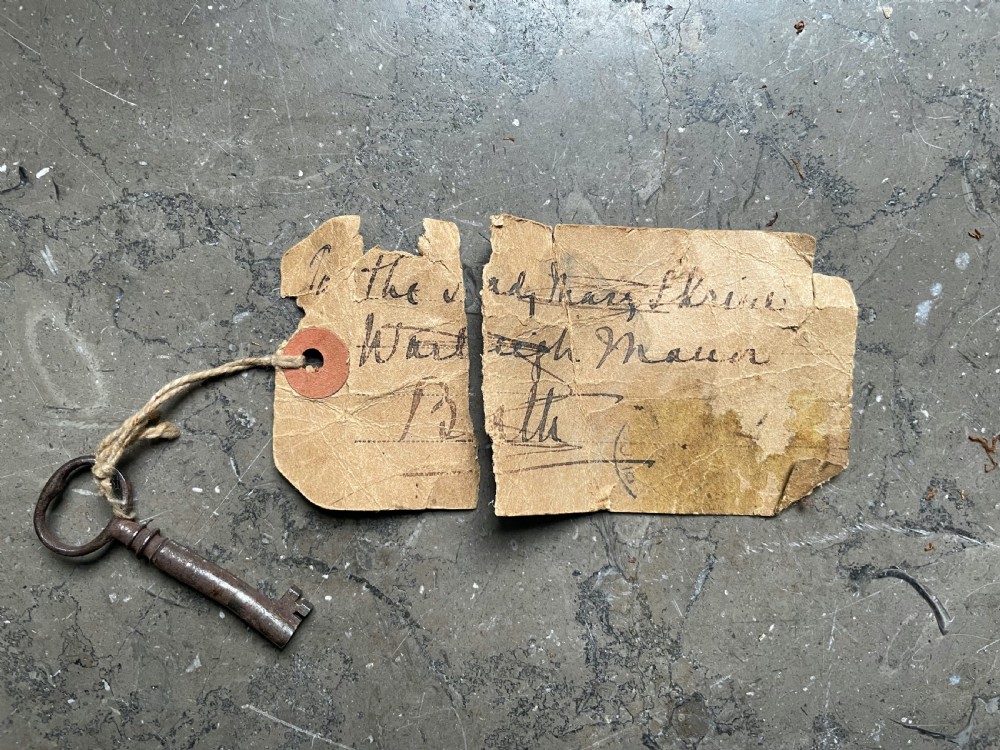 To the Lady Mary Shrine
Warleigh Manor
Bath